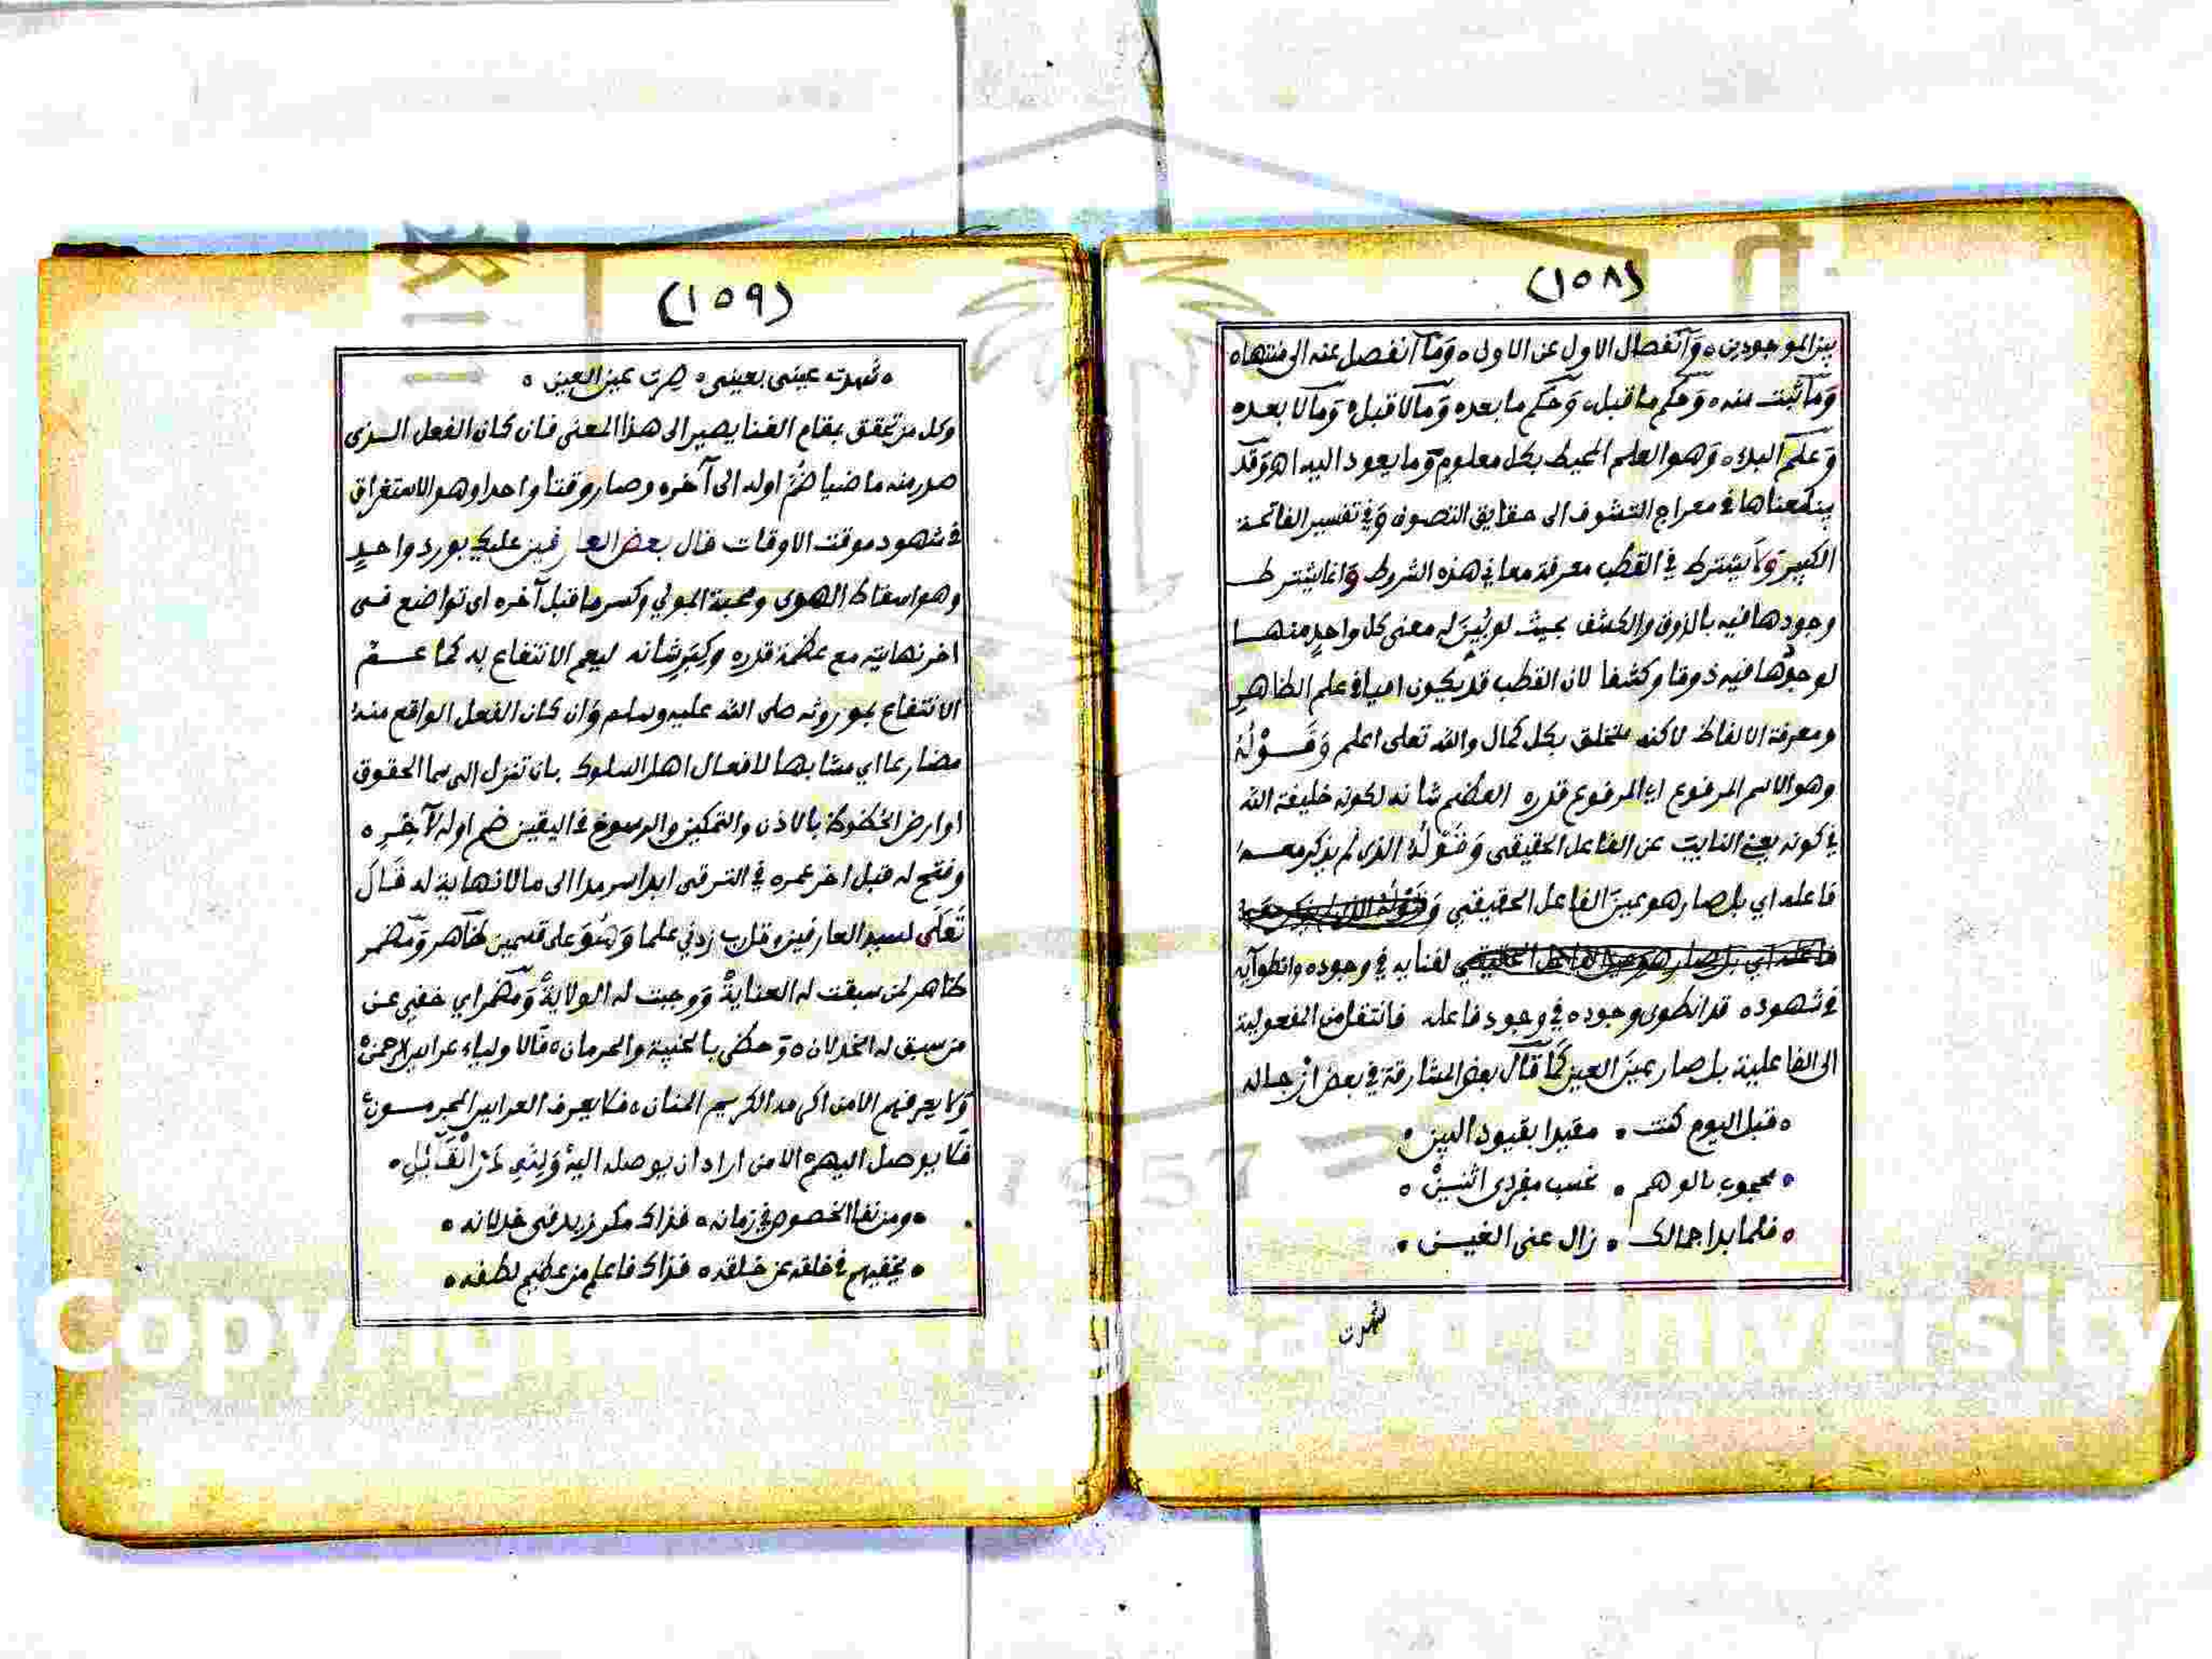 (١٥٨)
بين الموجودين ٥ وآنفصال الاول عن الاول ٥ وما آنفصل عنه الى منتهاه
وما ثبت منه ٥ وحكم ما قبل ٥ وحكم ما بعده وما لا قبل ٥ وما لا بعده
وعلم البدء ٥ وهو العلم المحيط بكل معلوم وما يعود اليه اه وقد
بينا معناها في معراج التشوف الى حقايق التصوف وفي تفسير الفاتحة
الكبير ولا يشترط في القطب معرفة معاني هذه الشروط وانما يشترط
وجودها فيه بالذوق والكشف بحيث لو بُيِّنَ له معنى كل واحدٍ منها
لوجدها فيه ذوقا وكشفا لان القطب قد يكون اميا في علم الظاهر
ومعرفة الالفاظ لاكنه متخلق بكل كمال والله تعلى اعلم وقوله
وهو الاسم المرفوع اي المرفوع قدره العظيم شانه لكونه خليفة الله
في كونه يعني النايب عن الفاعل الحقيقي وقوله الذي لم يذكر معه
فاعله اي بل صار هو عين الفاعل الحقيقي وقوله الذي لم يذكر معه
فاعله اي بل صار هو عين الفاعل الحقيقي لفنايه في وجوده وانطوآيه
في شهوده قد انطوى وجوده في وجود فاعله فانتقل من المفعولية
الى الفاعلية بل صار عين العين كما قال بعض المشارقة في بعض ازجاله
• قبل اليوم كنت • مقيدا بقيود البين •
• محجوب بالوهم • نحسب مفردي اثنين •
• فلما بدا جمالك • زال عني الغين •
شهدت
(١٥٩)
• شهدت عيني بعيني • صرت عين العين •
وكل من تحقق بمقام الفنا يصير الى هذا المعنى فان كان الفعل الذي
صدر منه ماضيا ضُمَّ اوله الى آخره وصار وقتا واحدا وهو الاستغراق
في شهود موقت الاوقات قال بعض العارفين عليك بورد واحدٍ
وهو اسقاط الهوى ومحبة المولي وكسر ما قبل آخره اي تواضع في
اخر نهايته مع عظمة قدره وكبر شانه ليعم الانتفاع به كما عم
الانتفاع بموروثه صلى الله عليه وسلم وان كان الفعل الواقع منه
مضارعا اي مشابها لافعال اهل السلوك بان تنزل الى سما الحقوق
او ارض الحظوظ بالاذن والتمكين والرسوخ في اليقين ضم اوله لآخره
وفتح له قبل اخر عمره في الترقي ابدا سرمدا الى ما لا نهاية له قال
تعلى لسيد العارفين وقل رب زدني علما وهو على قسمين ظاهر ومضمر
ظاهر لمن سبقت له العناية ووجبت له الولاية ومضمر اي خفي عن
من سبق له الخذلان ٥ وحظي بالخيبة والحرمان ٥ فالاولياء عرايس الرحمن
ولا يعرفهم الا من اكرمه الكريم المنان ٥ فلا يعرف العرايس المجرمون
فلا يوصل اليهم الا من اراد ان يوصله اليه ولله در القايل •
• ومن نفا الخصوص في زمانه • فذاك مكر زيد في خذلانه •
• يخفيهم في خلقه عن خلقه • فذاك فاعلم من عظيم لطفه •
Copyright © King Saud University
1957